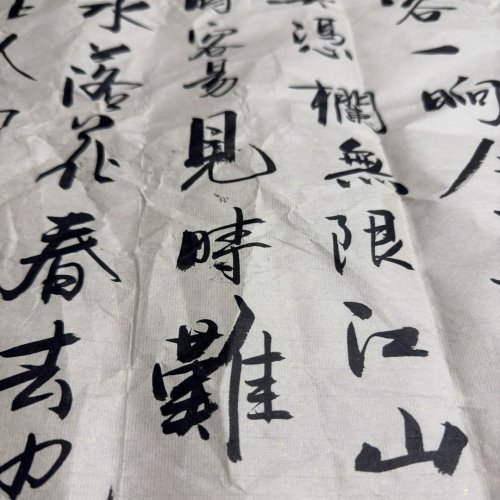 客一晌
憑欄無限江山
時容易見時難
水落花春去也
人